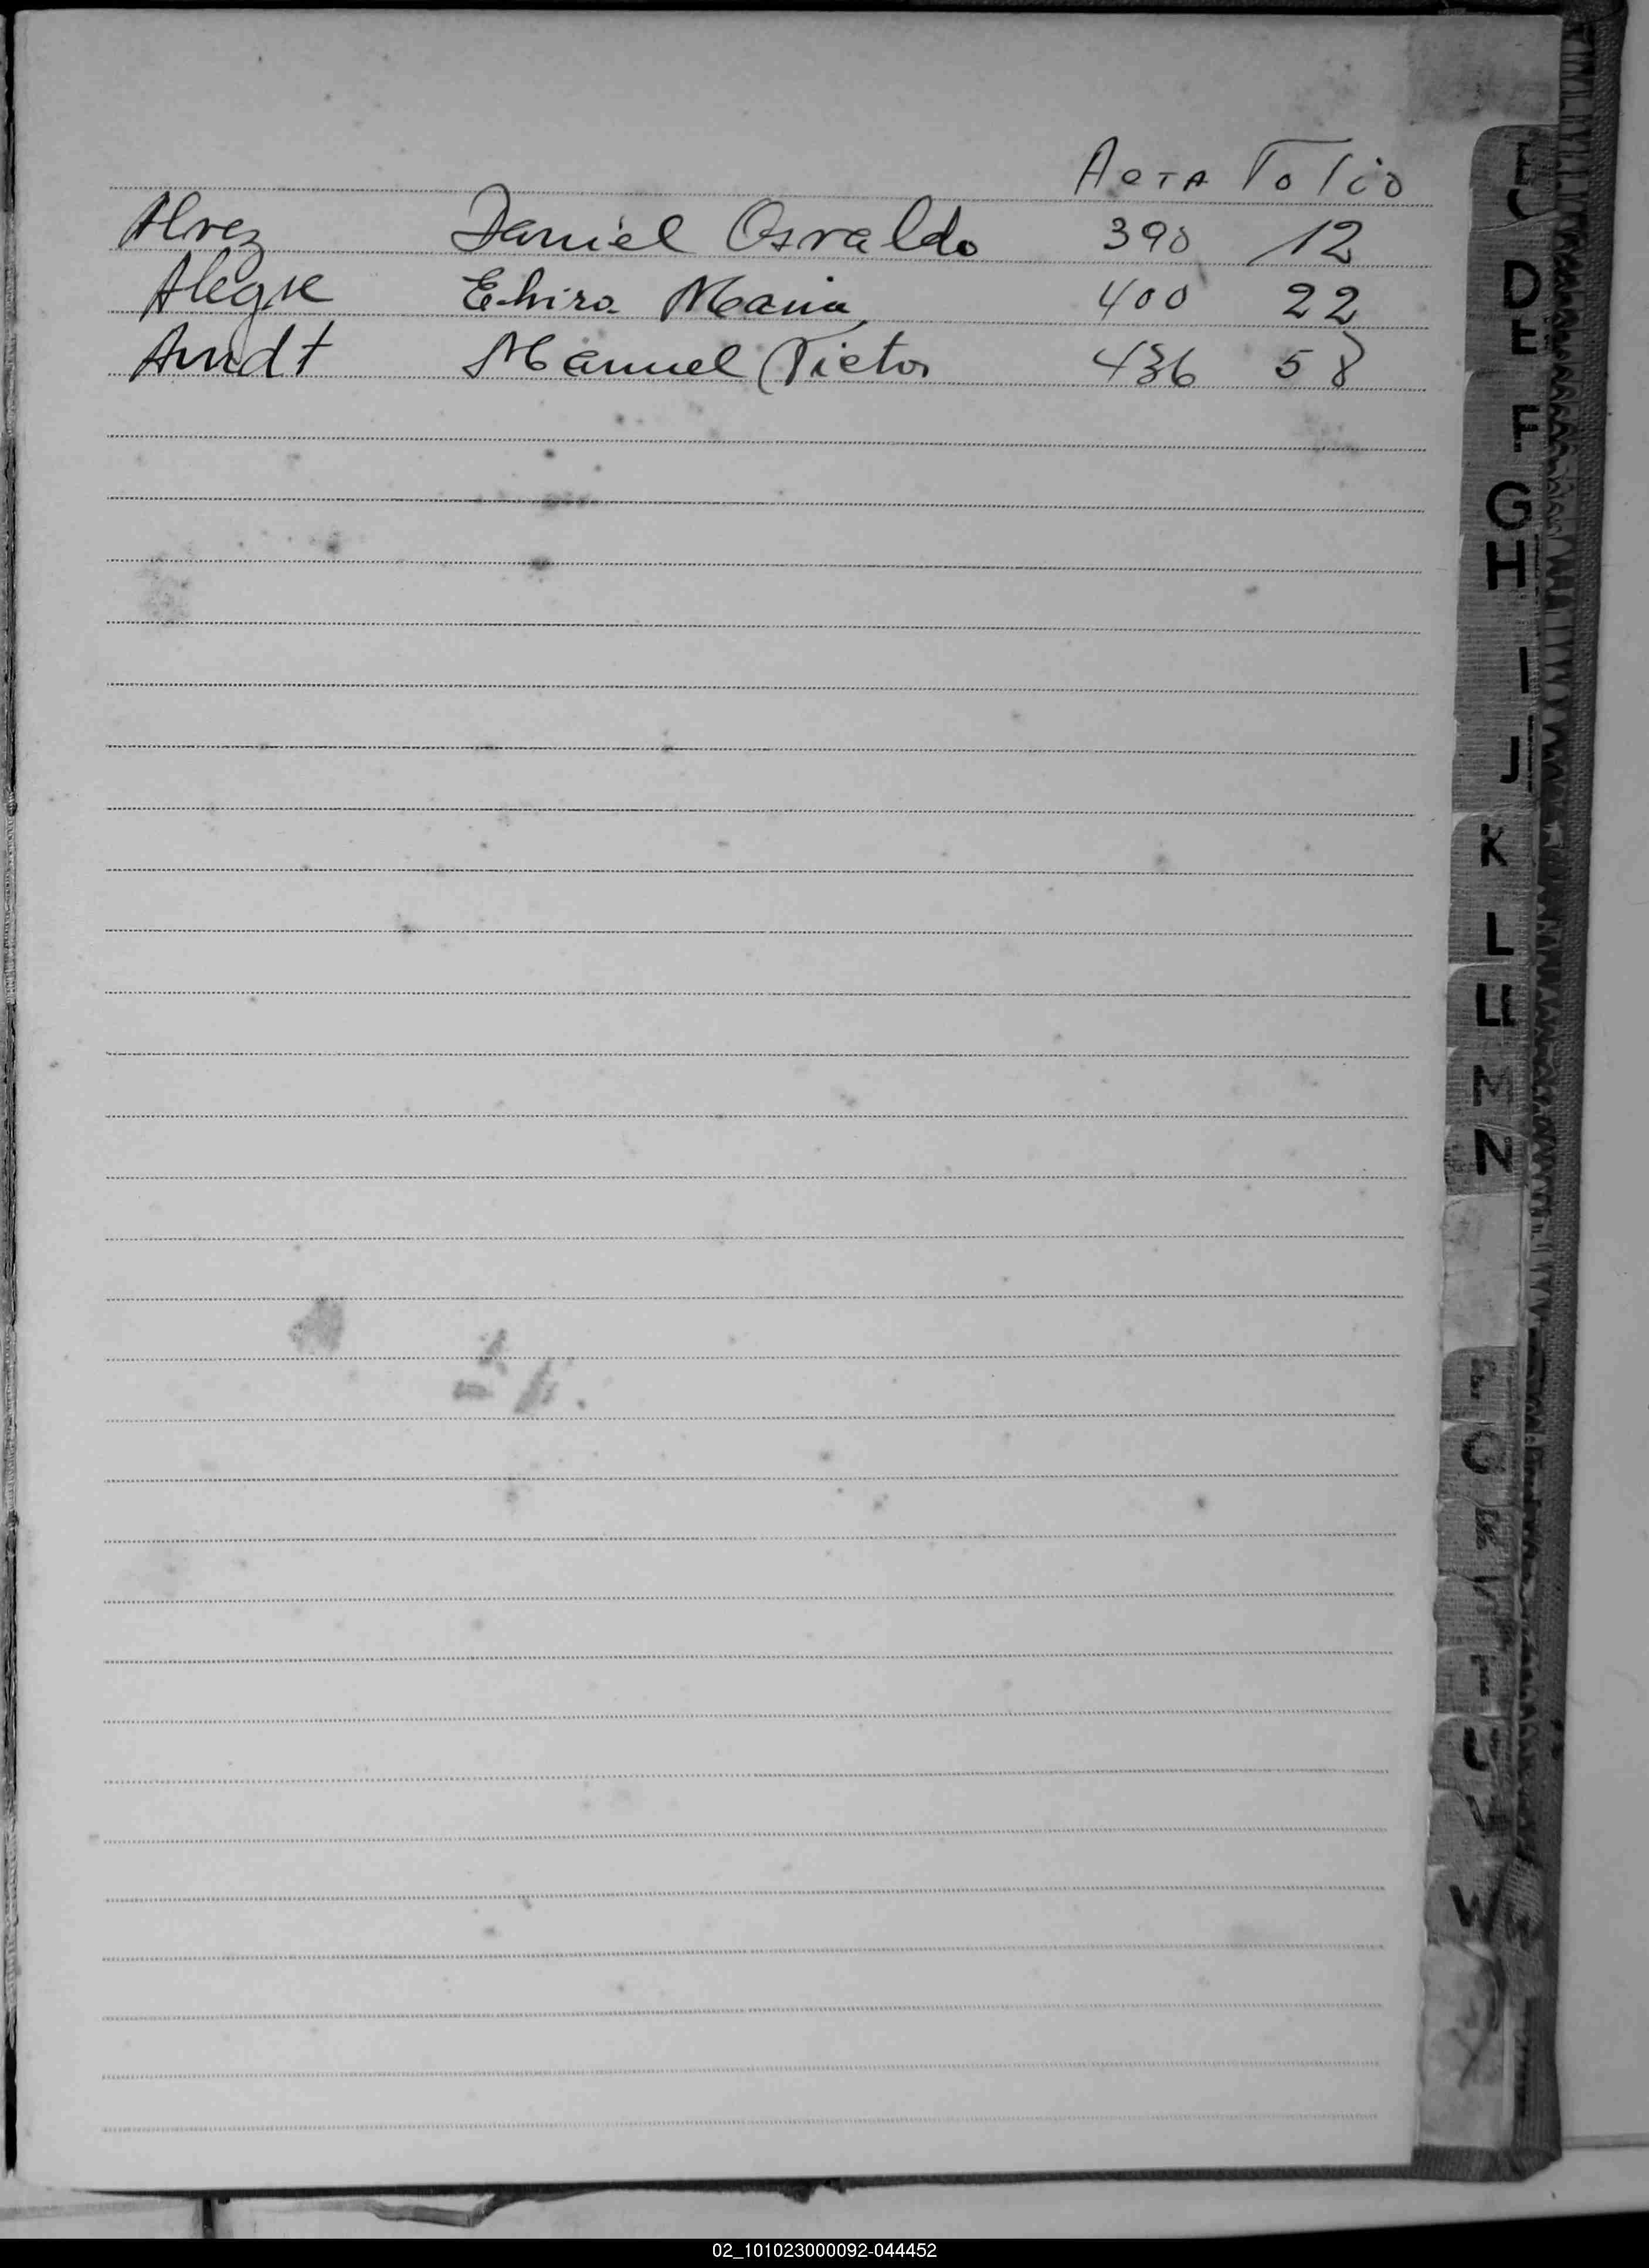 Acta Folio
Alvez Daniel Osvaldo 390 12
Alegre Elvira Maria 400 22
Arndt Manuel Victor 436 58
D
E
F
G
H
I
J
K
L
LL
M
N
P
Q
R
S
T
U
V
W
02_101023000092-044452